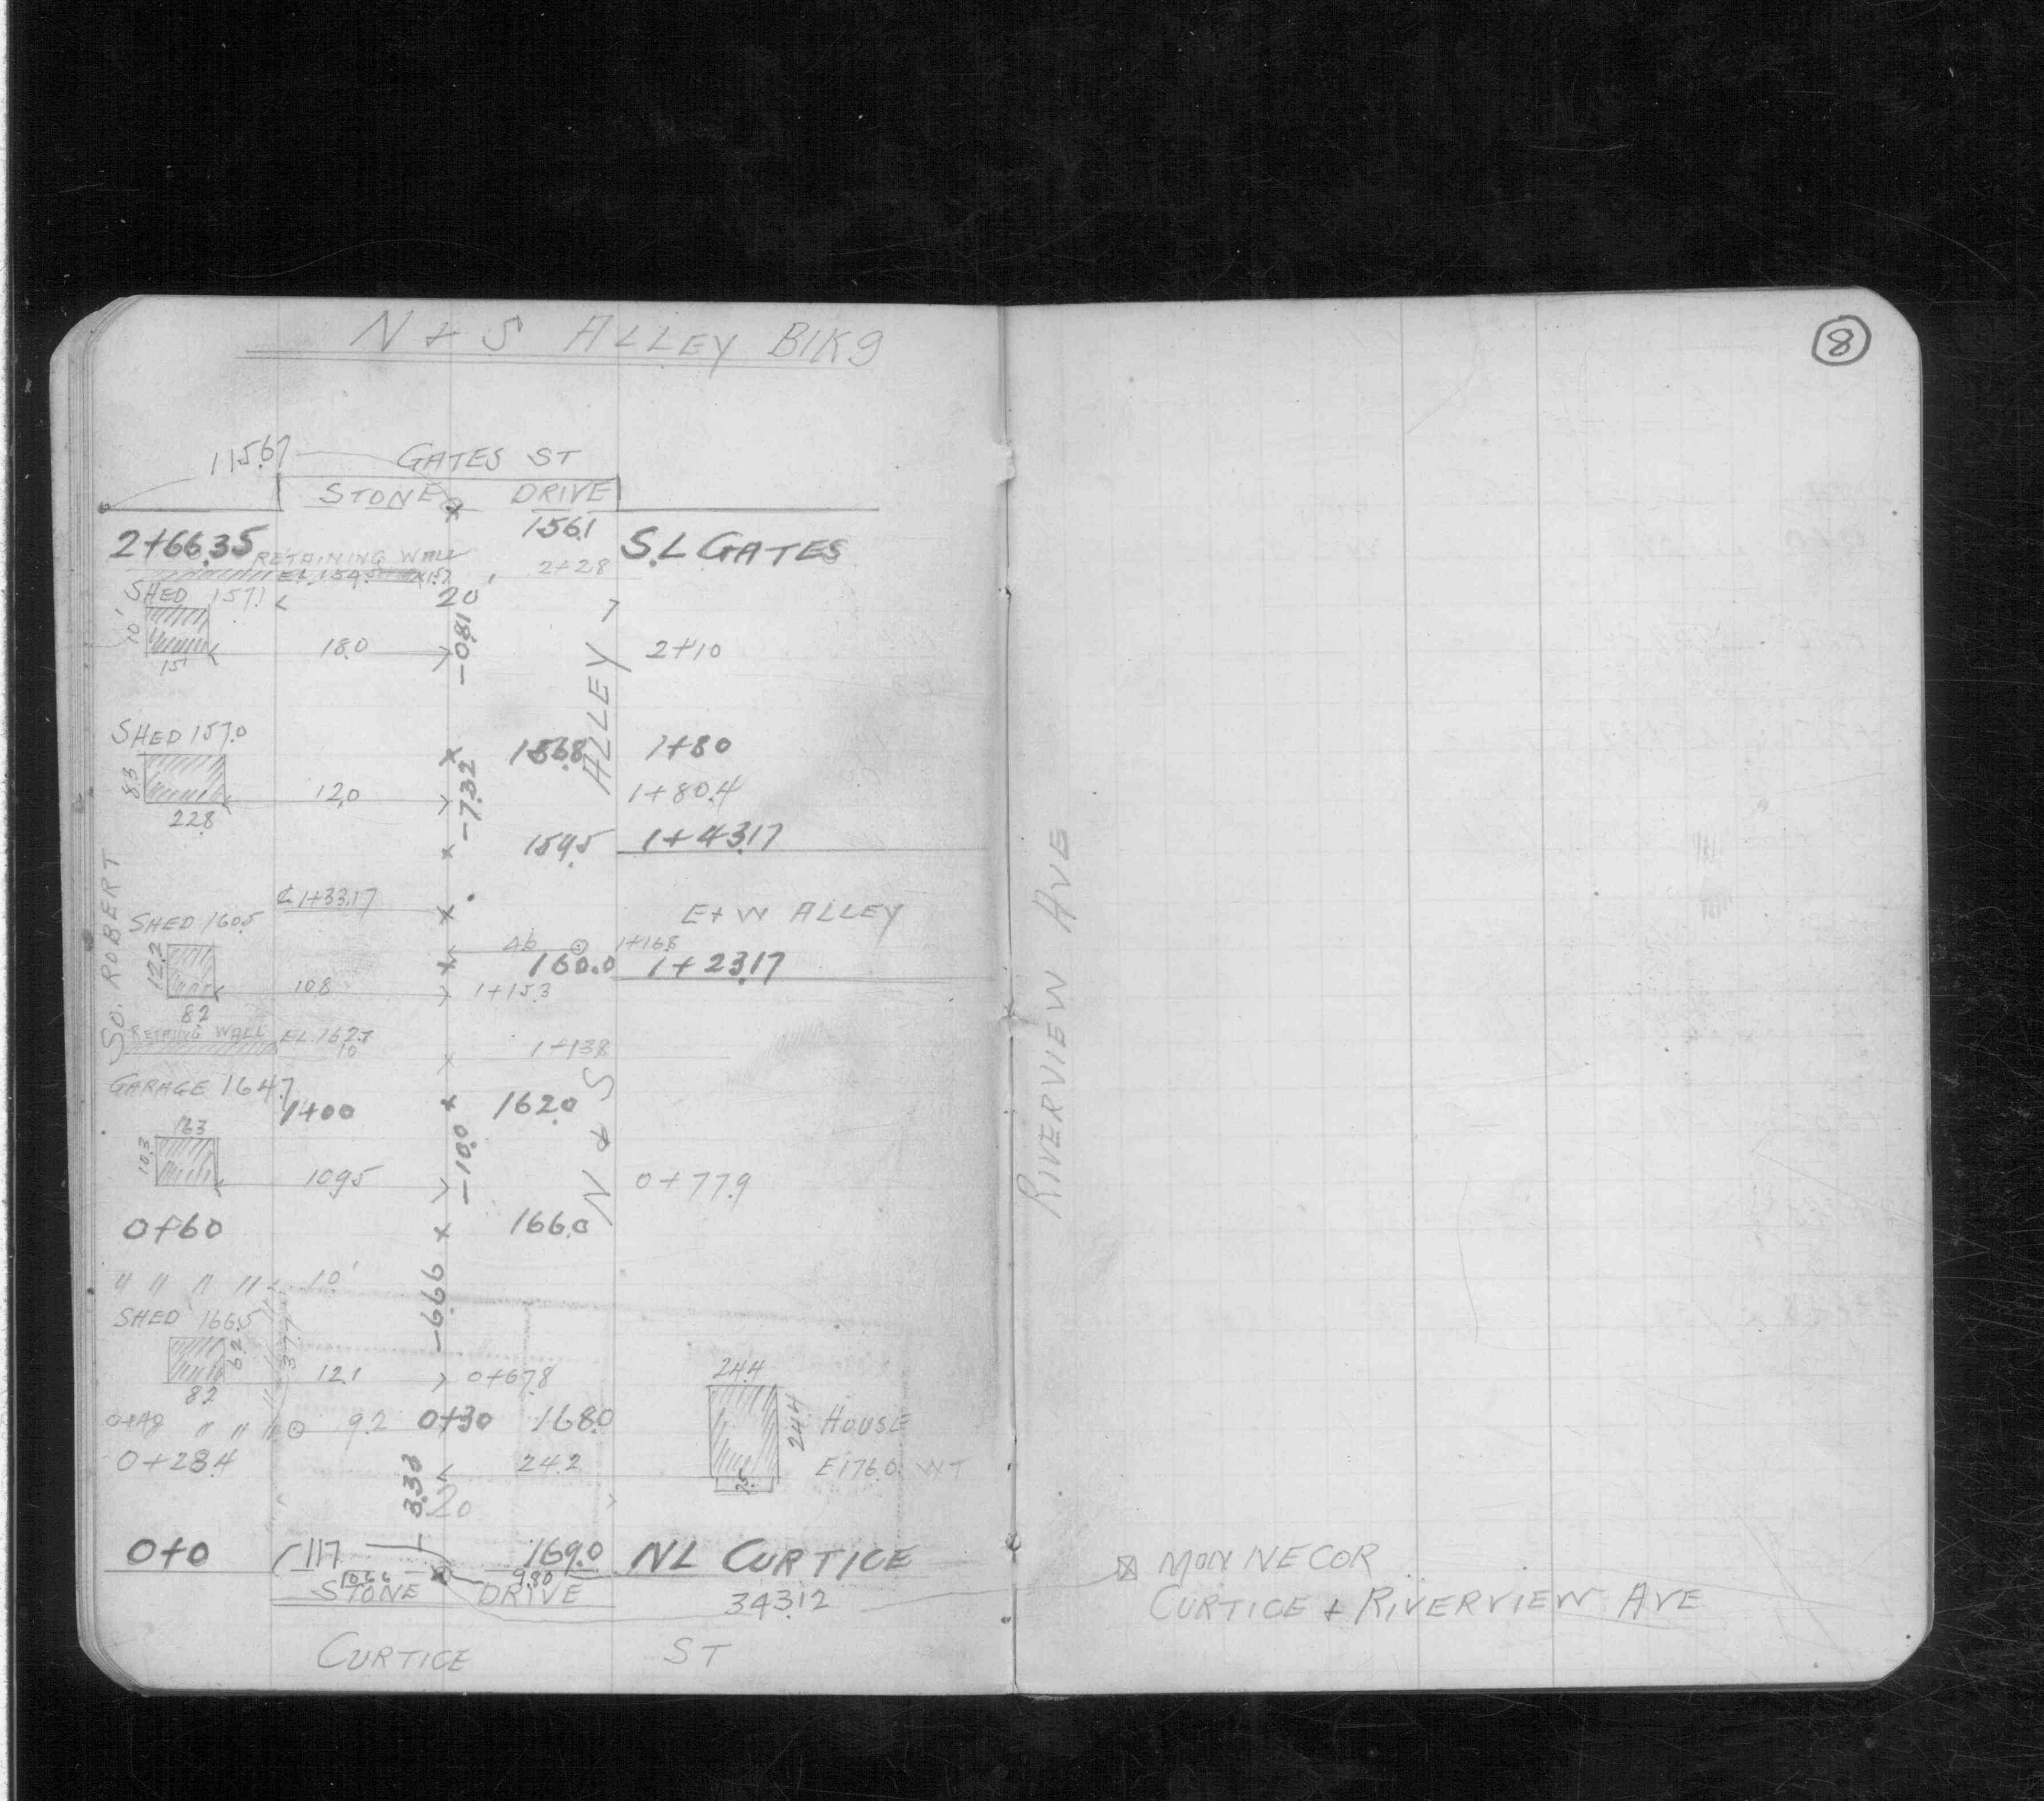 N + S ALLEY Blk 9
8
115.67 GATES ST
STONE DRIVE
156.1
2+66.35 S.L GATES
RETAINING WALL
2+28
EL. 154.5
SHED 157.1 20
10'
18.0 -0.81 2+10
15'
ALLEY
SHED 157.0
156.8 1+80
8.3 12.0 -7.32 1+80.4
22.8
159.5 1+43.17
SO. ROBERT
RIVERVIEW AVE
℄ 1+33.17
SHED 160.5 E+W ALLEY
1+16.8
12.2 160.0 1+23.17
10.8 1+15.3
8.2
RETAING WALL EL. 162.7
10
1+13.8
GARAGE 164.7
1+00 162.0
N & S
16.3
10.3 -10.0
10.95 0+77.9
0+60 166.0
" " " " 10'
-6.66
SHED 166.5
6.2 37.7
12.1 0+67.8
8.2
24.4
24.4 HOUSE
" " " 9.2 0+30 168.0
0+28.4 24.2 El 176.0
3.33
20
0+0 117 169.0 NL CURTICE
10.66 9.80
STONE DRIVE
343.12
MON NE COR
CURTICE + RIVERVIEW AVE
CURTICE ST